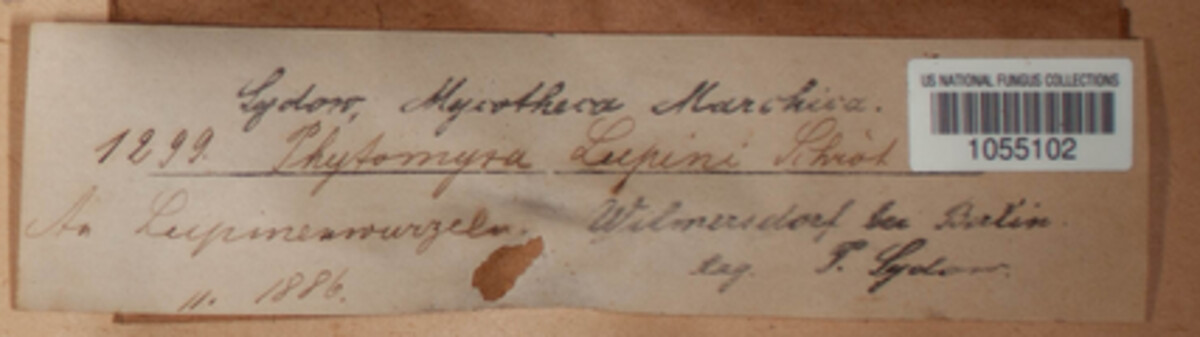 Sydow, Mycotheca Marchica.
US NATIONAL FUNGUS COLLECTIONS
1055102
1299. Phytomyxa Lupini Schröt
An Lupinenwurzeln. Wilmersdorf bei Berlin.
11. 1886. leg. P. Sydow.